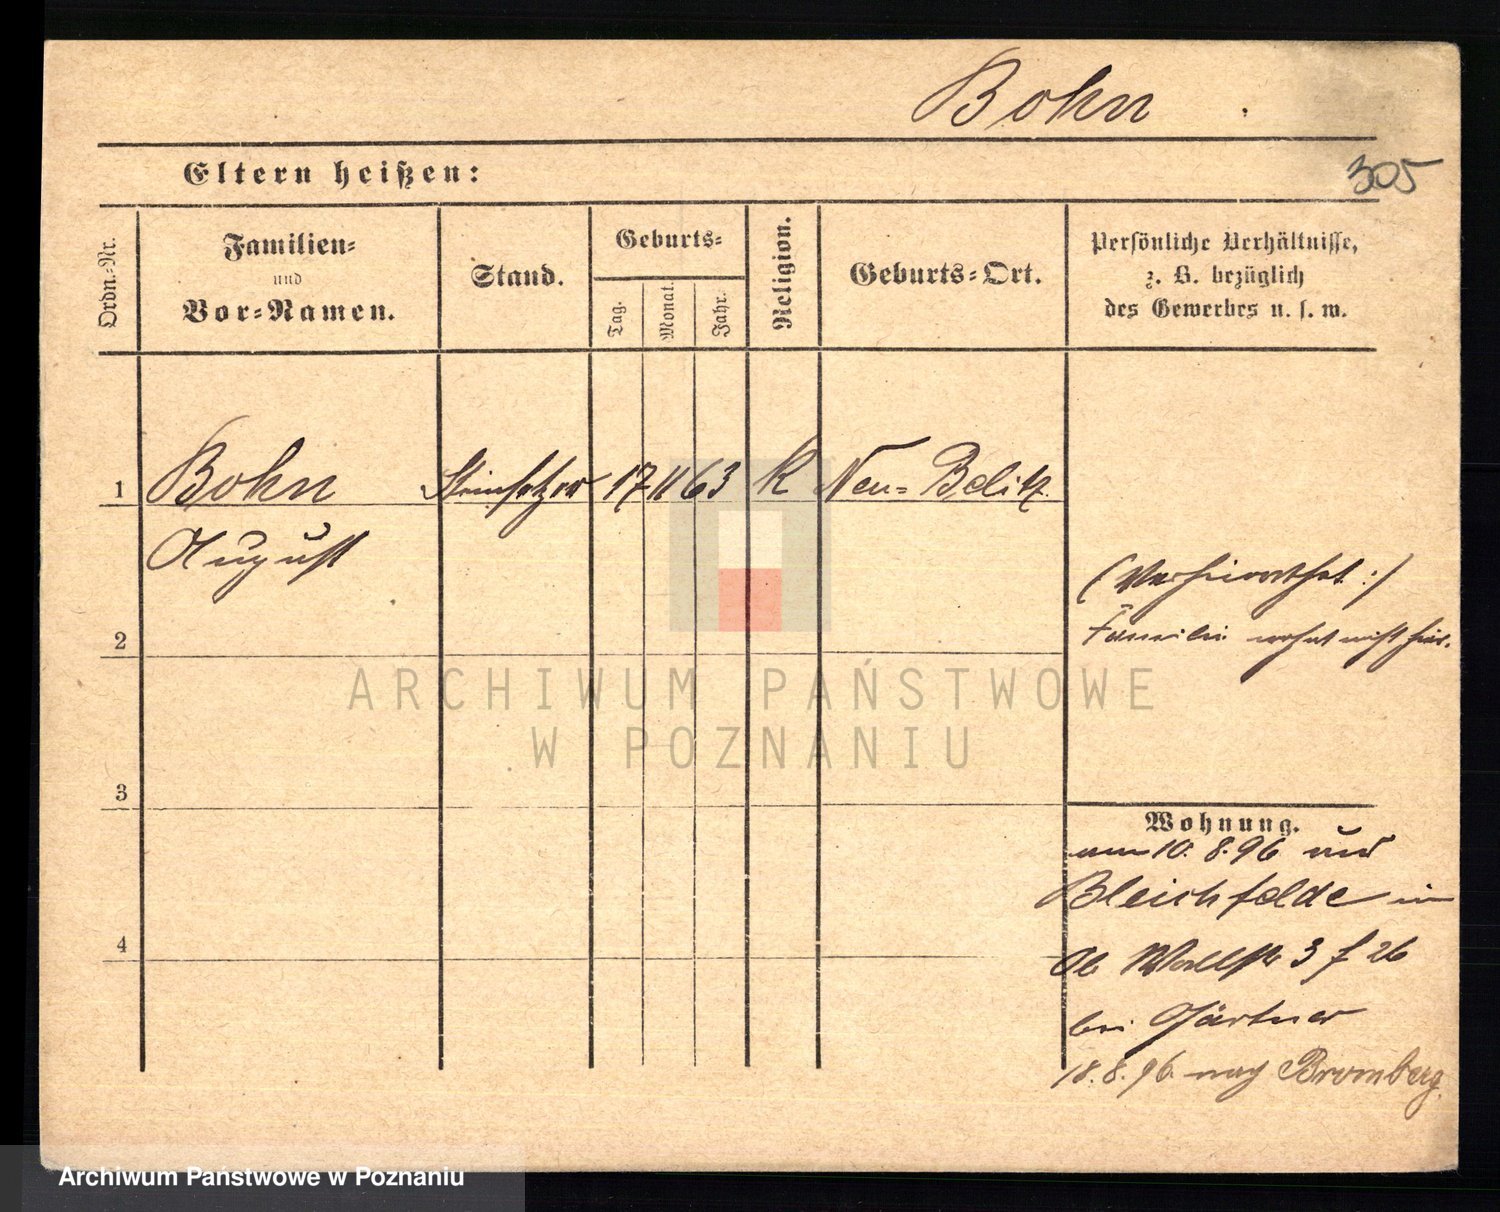 Bohn
305
Eltern heißen:
Ordn.-Nr.
Familien-
und
Vor-Namen.
Stand.
Geburts-
Tag.
Monat.
Jahr.
Religion.
Geburts-Ort.
Persönliche Verhältnisse,
z. B. bezüglich
des Gewerbes u. s. w.
1 Bohn Steinsetzer 17 11 63 K Neu-Belitz.
August
(Verheirathet:)
Familie wohnt nicht hier.
2
3
4
Wohnung.
am 10. 8. 96 aus
Bleichfelde in
Ob Wallstr 3 f 26
bei Gärtner
18. 8. 96. nach Bromberg.
ARCHIWUM PAŃSTWOWE
W POZNANIU
Archiwum Państwowe w Poznaniu